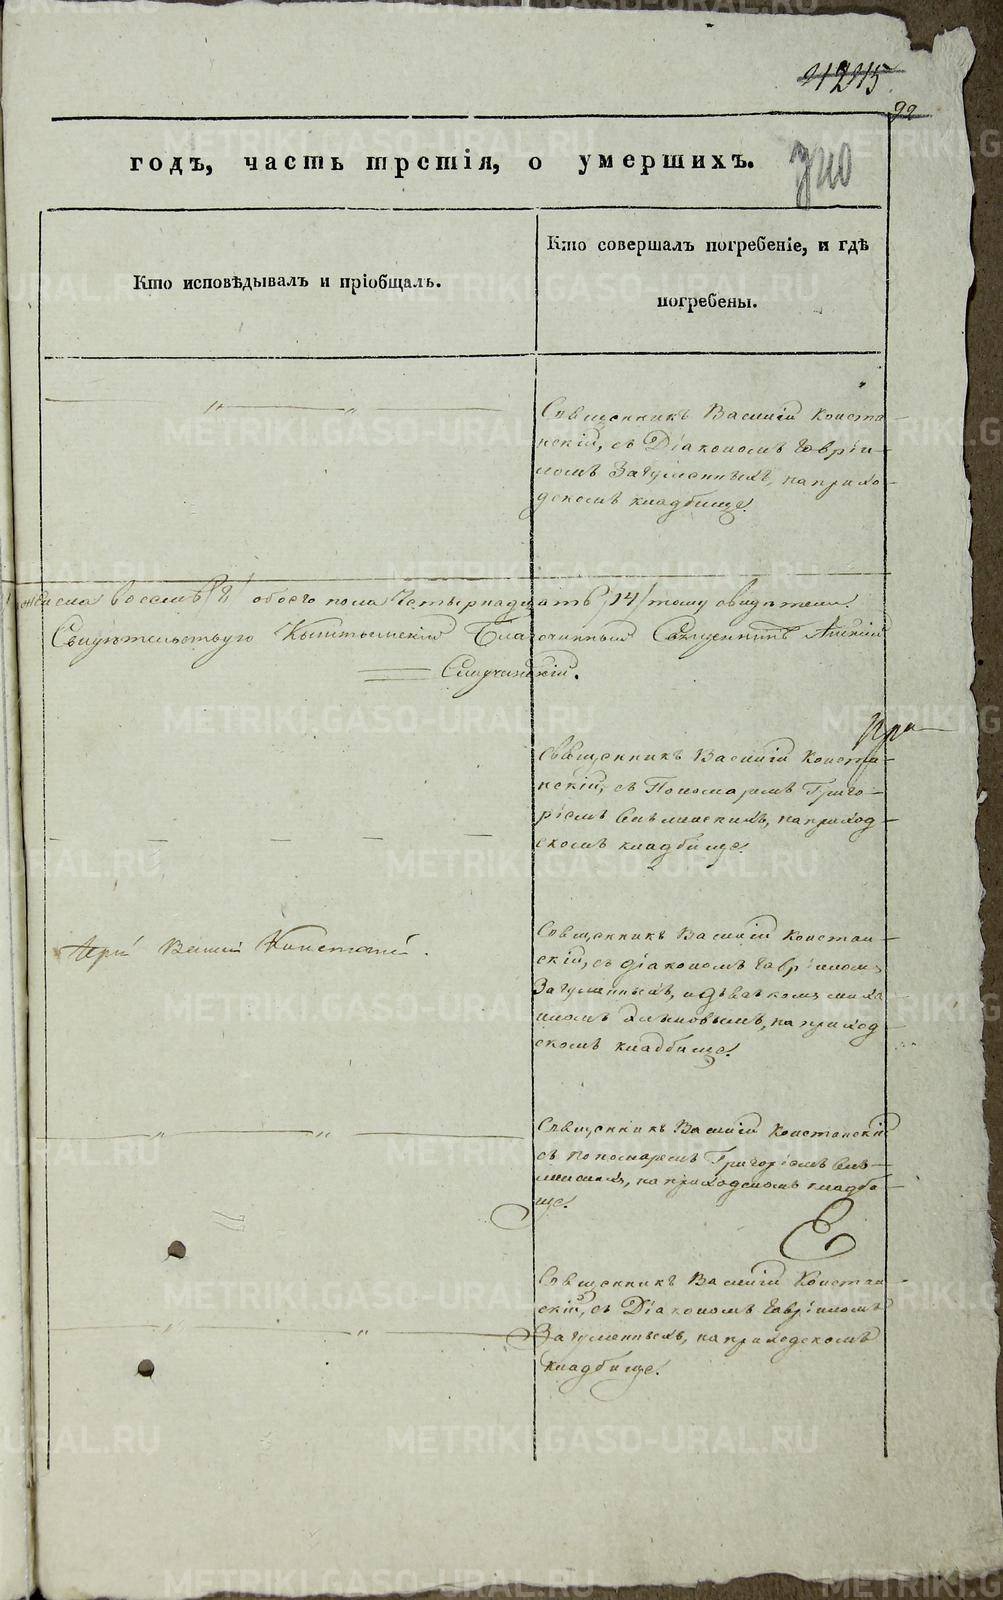 92
годъ, часть третія, о умершихъ.
Кто исповѣдывалъ и пріобщалъ.
Кто совершалъ погребеніе, и гдѣ
погребены.
Священникъ Василій Констан-
скій, съ Діакономъ Гаврiи-
ломъ Загуменныхъ, на прихо-
дскомъ кладбище.
женска восемь /8/ обоего пола Четырнадцать /14/ тому
Свидѣтельствую Кыштымскій Благочинный Священникъ Алексій
Случанскій.
Священникъ Василій Констан-
скій, съ Пономаремъ Григо-
ріемъ на приход-
скомъ кладбище.
Iерей Василій Констанскій.
Священникъ Василій Констан-
скій, съ діакономъ Гавріиломъ
Загуменныхъ, и дьячкомъ Миха
иломъ на приход-
скомъ кладбище.
Священникъ Василій Констанскій
съ пономаремъ Григоріемъ
на приходскомъ кладби-
ще.
Священникъ Василій Констан-
скій, съ Діакономъ Гавріиломъ
Загуменныхъ, на приходскомъ
кладбище.
METRIKI.GASO-URAL.RU